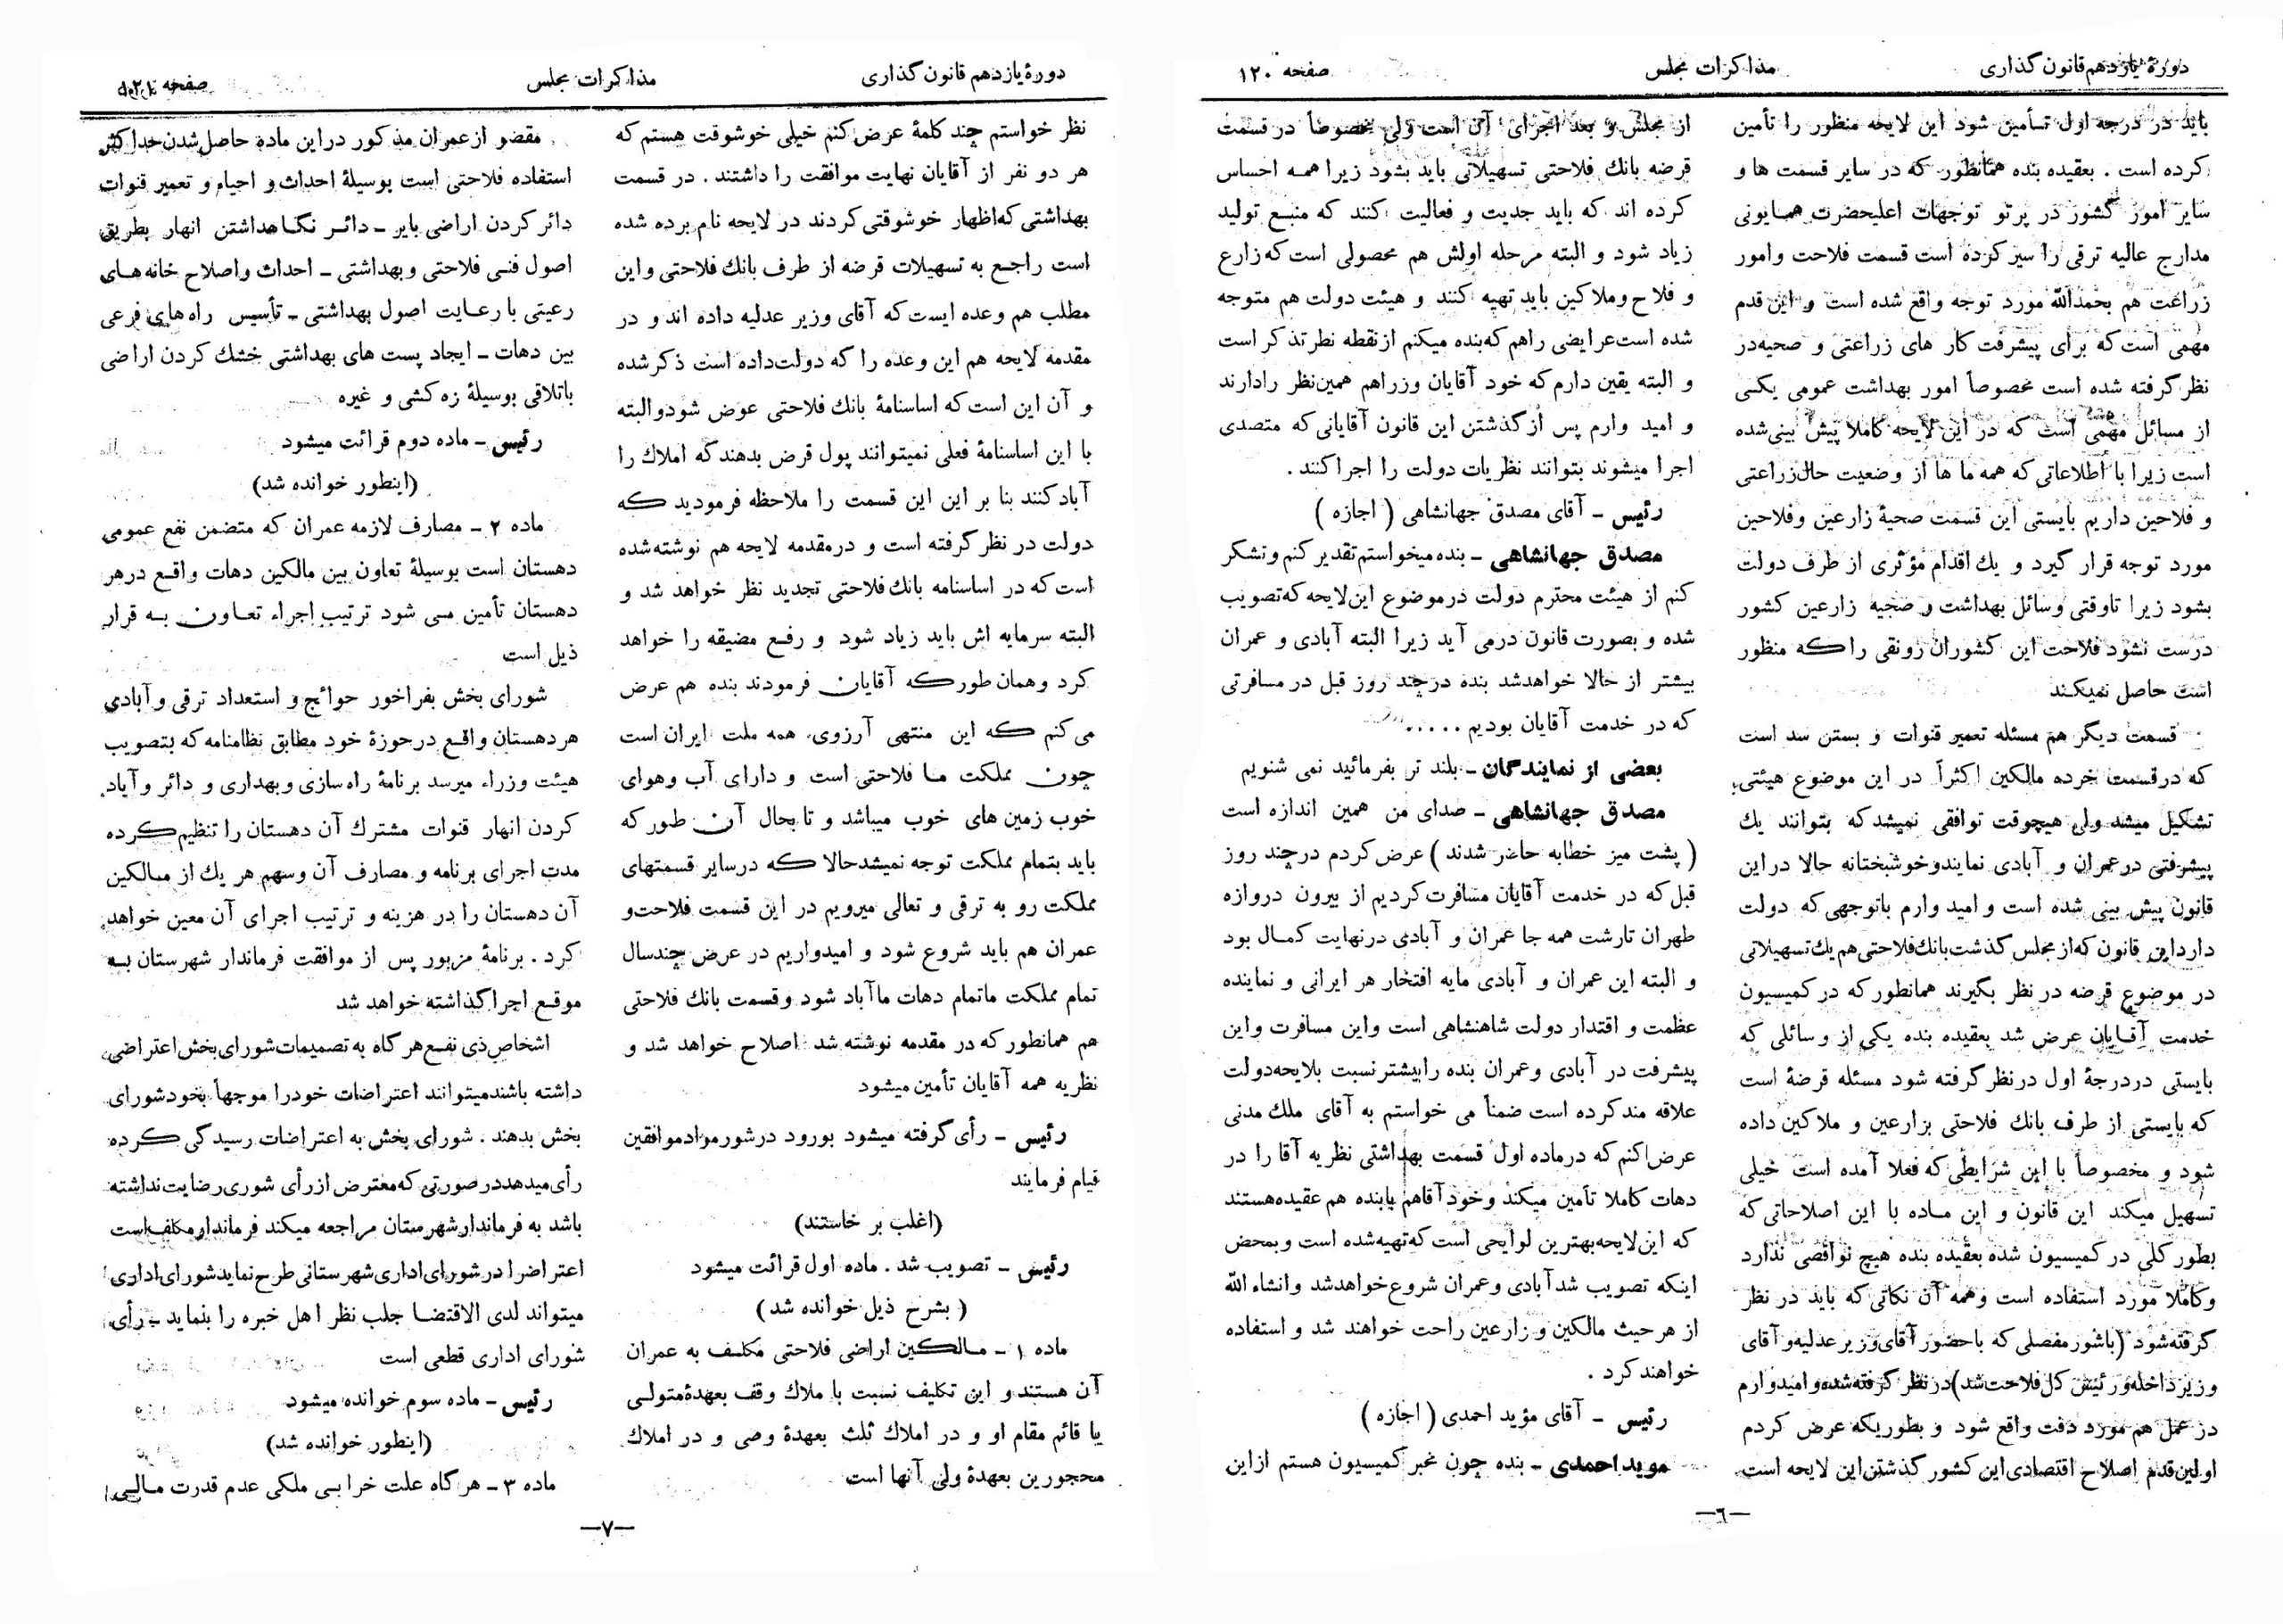 دورهٔ یازدهم قانون گذاری
مذاکرات مجلس
صفحه ۱۲۰
باید در درجه اول تأمین شود این لایحه منظور را تأمین
کرده است . بعقیده بنده همانطور که در سایر قسمت ها و
سایر امور کشور در پرتو توجهات اعلیحضرت همایونی
مدارج عالیه ترقی را سیر کرده است قسمت فلاحت وامور
زراعت هم بحمدالله مورد توجه واقع شده است و این قدم
مهمی است که برای پیشرفت کار های زراعتی و صحیه در
نظر گرفته شده است مخصوصاً امور بهداشت عمومی یکی
از مسائل مهمی است که در این لایحه کاملا پیش بینی شده
است زیرا با اطلاعاتی که همه ما ها از وضعیت حال زراعتی
و فلاحین داریم بایستی این قسمت صحیهٔ زارعین وفلاحین
مورد توجه قرار گیرد و یك اقدام مؤثری از طرف دولت
بشود زیرا تاوقتی وسائل بهداشت و صحیه زارعین کشور
درست نشود فلاحت این کشور آن رونقی را که منظور
است حاصل نمیکند
قسمت دیگر هم مسئله تعمیر قنوات و بستن سد است
که در قسمت خرده مالکین اکثراً در این موضوع هیئتی
تشکیل میشد ولی هیچوقت توافقی نمیشد که بتوانند یك
پیشرفتی در عمران و آبادی نمایند و خوشبختانه حالا در این
قانون پیش بینی شده است و امید وارم باتوجهی که دولت
دارد این قانون که از مجلس گذشت بانك فلاحتی هم یك تسهیلاتی
در موضوع قرضه در نظر بگیرند همانطور که در کمیسیون
خدمت آقایان عرض شد بعقیده بنده یکی از وسائلی که
بایستی در درجهٔ اول در نظر گرفته شود مسئله قرضهٔ است
که بایستی از طرف بانك فلاحتی بزارعین و ملاکین داده
شود و مخصوصاً با این شرایطی که فعلا آمده است خیلی
تسهیل میکند این قانون و این ماده با این اصلاحاتی که
بطور کلی در کمیسیون شده بعقیده بنده هیچ نواقصی ندارد
و کاملا مورد استفاده است و همه آن نکاتی که باید در نظر
گرفته شود (باشور مفصلی که باحضور آقای وزیر عدلیه و آقای
وزیر داخله و رئیس کل فلاحت شد) در نظر گرفته شده و امیدوارم
در عمل هم مورد دقت واقع شود و بطوریکه عرض کردم
اولین قدم اصلاح اقتصادی این کشور گذشتن این لایحه است
از مجلس و بعد اجرای آن است ولی مخصوصاً در قسمت
قرضه بانك فلاحتی تسهیلاتی باید بشود زیرا همه احساس
کرده اند که باید جدیت و فعالیت کنند که منبع تولید
زیاد شود و البته مرحله اولش هم محصولی است که زارع
و فلاح و ملاکین باید تهیه کنند و هیئت دولت هم متوجه
شده است عرایضی راهم که بنده میکنم از نقطه نظر تذکر است
و البته یقین دارم که خود آقایان وزراهم همین نظر رادارند
و امید وارم پس از گذشتن این قانون آقایانی که متصدی
اجرا میشوند بتوانند نظریات دولت را اجرا کنند .
رئیس ـ آقای مصدق جهانشاهی ( اجازه )
مصدق جهانشاهی ـ بنده میخواستم تقدیر کنم و تشکر
کنم از هیئت محترم دولت در موضوع این لایحه که تصویب
شده و بصورت قانون در می آید زیرا البته آبادی و عمران
بیشتر از حالا خواهد شد بنده در چند روز قبل در مسافرتی
که در خدمت آقایان بودیم . . . . .
بعضی از نمایندگان ـ بلند تر بفرمائید نمی شنویم
مصدق جهانشاهی ـ صدای من همین اندازه است
( پشت میز خطابه حاضر شدند ) عرض کردم در چند روز
قبل که در خدمت آقایان مسافرت کردیم از بیرون دروازه
طهران تا رشت همه جا عمران و آبادی در نهایت کمال بود
و البته این عمران و آبادی مایه افتخار هر ایرانی و نماینده
عظمت و اقتدار دولت شاهنشاهی است و این مسافرت و این
پیشرفت در آبادی و عمران بنده را بیشتر نسبت بلایحه دولت
علاقه مند کرده است ضمناً می خواستم به آقای ملك مدنی
عرض کنم که در ماده اول قسمت بهداشتی نظریه آقا را در
دهات کاملا تأمین میکند و خود آقاهم بابنده هم عقیده هستند
که این لایحه بهترین لوایحی است که تهیه شده است و بمحض
اینکه تصویب شد آبادی و عمران شروع خواهد شد و انشاء الله
از هر حیث مالکین و زارعین راحت خواهند شد و استفاده
خواهند کرد .
رئیس ـ آقای مؤید احمدی ( اجازه )
موید احمدی ـ بنده چون مخبر کمیسیون هستم از این
ـ٦ـ
دورهٔ یازدهم قانون گذاری
مذاکرات مجلس
صفحه ۱۲۱
نظر خواستم چند کلمهٔ عرض کنم خیلی خوشوقت هستم که
هر دو نفر از آقایان نهایت موافقت را داشتند . در قسمت
بهداشتی که اظهار خوشوقتی کردند در لایحه نام برده شده
است راجع به تسهیلات قرضه از طرف بانك فلاحتی و این
مطلب هم وعده ایست که آقای وزیر عدلیه داده اند و در
مقدمه لایحه هم این وعده را که دولت داده است ذکر شده
و آن این است که اساسنامهٔ بانك فلاحتی عوض شود و البته
با این اساسنامهٔ فعلی نمیتوانند پول قرض بدهند که املاك را
آباد کنند بنا بر این این قسمت را ملاحظه فرمودید که
دولت در نظر گرفته است و در مقدمه لایحه هم نوشته شده
است که در اساسنامه بانك فلاحتی تجدید نظر خواهد شد و
البته سرمایه اش باید زیاد شود و رفع مضیقه را خواهد
کرد و همان طور که آقایان فرمودند بنده هم عرض
می کنم که این منتهی آرزوی همه ملت ایران است
چون مملکت ما فلاحتی است و دارای آب وهوای
خوب زمین های خوب میباشد و تا بحال آن طور که
باید بتمام مملکت توجه نمیشد حالا که در سایر قسمتهای
مملکت رو به ترقی و تعالی میرویم در این قسمت فلاحت و
عمران هم باید شروع شود و امیدواریم در عرض چند سال
تمام مملکت ما تمام دهات ما آباد شود و قسمت بانك فلاحتی
هم همانطور که در مقدمه نوشته شد اصلاح خواهد شد و
نظریه همه آقایان تأمین میشود
رئیس ـ رأی گرفته میشود بورود در شور مواد موافقین
قیام فرمایند
(اغلب بر خاستند)
رئیس ـ تصویب شد . ماده اول قرائت میشود
( بشرح ذیل خوانده شد )
ماده ۱ ـ مالکین اراضی فلاحتی مکلف به عمران
آن هستند و این تکلیف نسبت با ملاك وقف بعهدهٔ متولی
یا قائم مقام او و در املاك ثلث بعهدهٔ وصی و در املاك
محجورین بعهدهٔ ولی آنها است
مقضو از عمران مذکور در این ماده حاصل شدن حد اکثر
استفاده فلاحتی است بوسیلهٔ احداث و احیام و تعمیر قنوات
دائر کردن اراضی بایر ـ دائر نگاهداشتن انهار بطریق
اصول فنی فلاحتی و بهداشتی ـ احداث و اصلاح خانه های
رعیتی با رعایت اصول بهداشتی ـ تأسیس راه های فرعی
بین دهات ـ ایجاد پست های بهداشتی خشك کردن اراضی
باتلاقی بوسیلهٔ زه کشی و غیره
رئیس ـ ماده دوم قرائت میشود
(اینطور خوانده شد)
ماده ۲ ـ مصارف لازمه عمران که متضمن نفع عمومی
دهستان است بوسیلهٔ تعاون بین مالکین دهات واقع در هر
دهستان تأمین می شود ترتیب اجراء تعاون به قرار
ذیل است
شورای بخش بفراخور حوائج و استعداد ترقی و آبادی
هر دهستان واقع در حوزهٔ خود مطابق نظامنامه که بتصویب
هیئت وزراء میرسد برنامهٔ راه سازی و بهداری و دائر و آباد
کردن انهار قنوات مشترك آن دهستان را تنظیم کرده
مدت اجرای برنامه و مصارف آن و سهم هر یك از مالکین
آن دهستان را در هزینه و ترتیب اجرای آن معین خواهد
کرد . برنامهٔ مزبور پس از موافقت فرماندار شهرستان به
موقع اجرا گذاشته خواهد شد
اشخاص ذی نفع هر گاه به تصمیمات شورای بخش اعتراضی
داشته باشند میتوانند اعتراضات خود را موجهاً بخود شورای
بخش بدهند . شورای بخش به اعتراضات رسیدگی کرده
رأی میدهد در صورتی که معترض از رأی شوری رضایت نداشته
باشد به فرماندار شهرستان مراجعه میکند فرماندار مکلف است
اعتراض را در شورای اداری شهرستانی طرح نماید شورای اداری
میتواند لدی الاقتضا جلب نظر اهل خبره را بنماید ـ رأی
شورای اداری قطعی است
رئیس ـ ماده سوم خوانده میشود
(اینطور خوانده شد)
ماده ۳ ـ هر گاه علت خرابی ملکی عدم قدرت مالی
ـ۷ـ